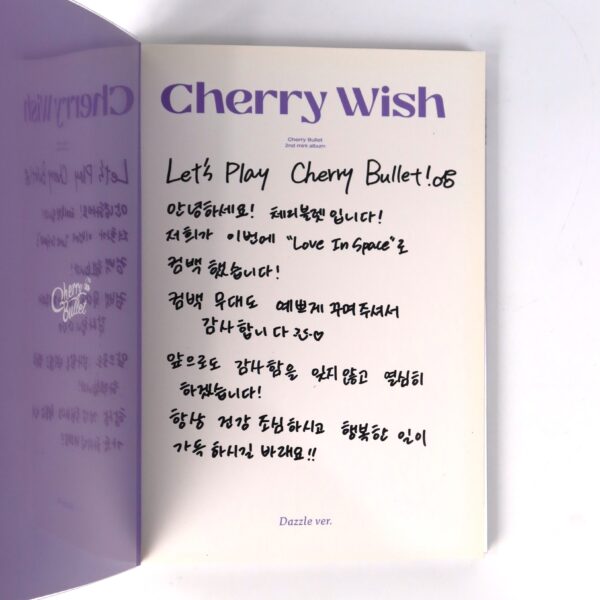 Cherry Wish
Cherry Bullet
2nd mini album
Let's Play Cherry Bullet!
안녕하세요! 체리블렛입니다!
저희가 이번에 "Love In Space"로
컴백 했습니다!
컴백 무대도 예쁘게 꾸며주셔서
감사합니다
앞으로도 감사함을 잊지않고 열심히
하겠습니다!
항상 건강 조심하시고 행복한 일이
가득하시길 바래요!!
Dazzle ver.
Cherry
Bullet